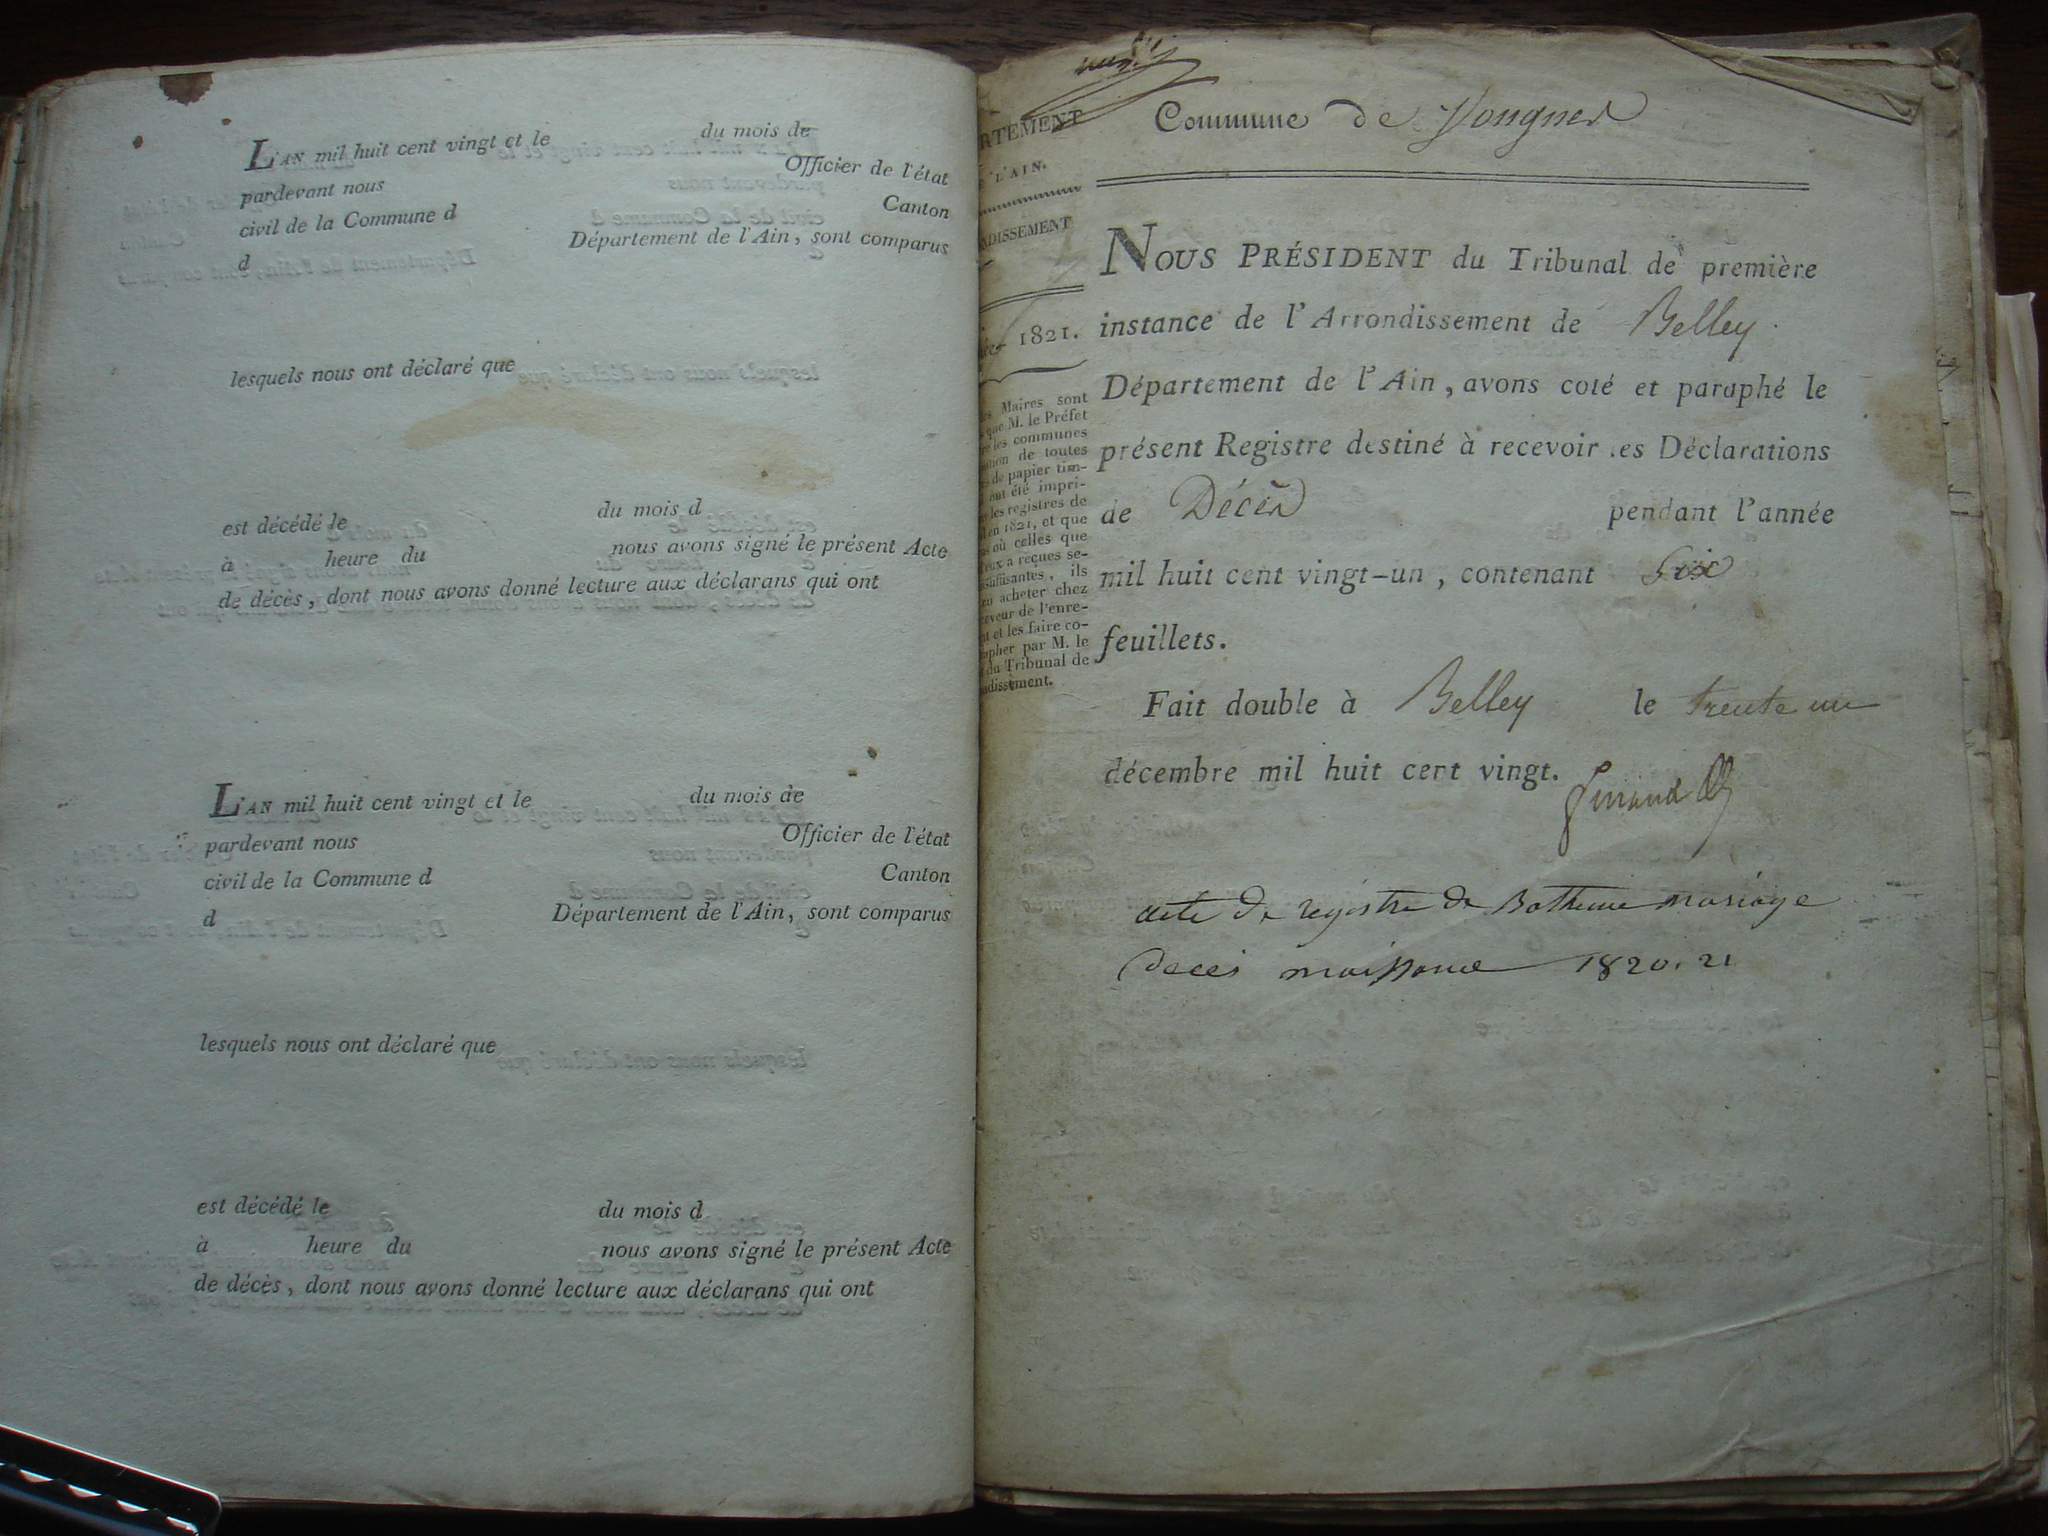 L'AN mil huit cent vingt et le du mois de
pardevant nous Officier de l'état
civil de la Commune d Canton
d Département de l'Ain, sont comparus
lesquels nous ont déclaré que
est décédé le du mois d
à heure du nous avons signé le présent Acte
de décès, dont nous avons donné lecture aux déclarans qui ont
L'AN mil huit cent vingt et le du mois de
pardevant nous Officier de l'état
civil de la Commune d Canton
d Département de l'Ain, sont comparus
lesquels nous ont déclaré que
est décédé le du mois d
à heure du nous avons signé le présent Acte
de décès, dont nous avons donné lecture aux déclarans qui ont
RTEMENT
L'AIN.
NDISSEMENT
1821.
Maires sont
que M. le Préfet
les communes
de toutes
de papier tim-
ont été impri-
les registres de
en 1821, et que
où celles que
a reçues se-
ils
acheter chez
de l'enre-
et les faire co-
par M. le
du Tribunal de
Commune de Vongnes
NOUS PRÉSIDENT du Tribunal de première
instance de l'Arrondissement de Belley
Département de l'Ain, avons coté et paraphé le
présent Registre destiné à recevoir les Déclarations
de Décès pendant l'année
mil huit cent vingt-un, contenant Six
feuillets.
Fait double à Belley le trente un
décembre mil huit cent vingt.
acte de registre de Batheme mariage
deces naissance 1820. 21